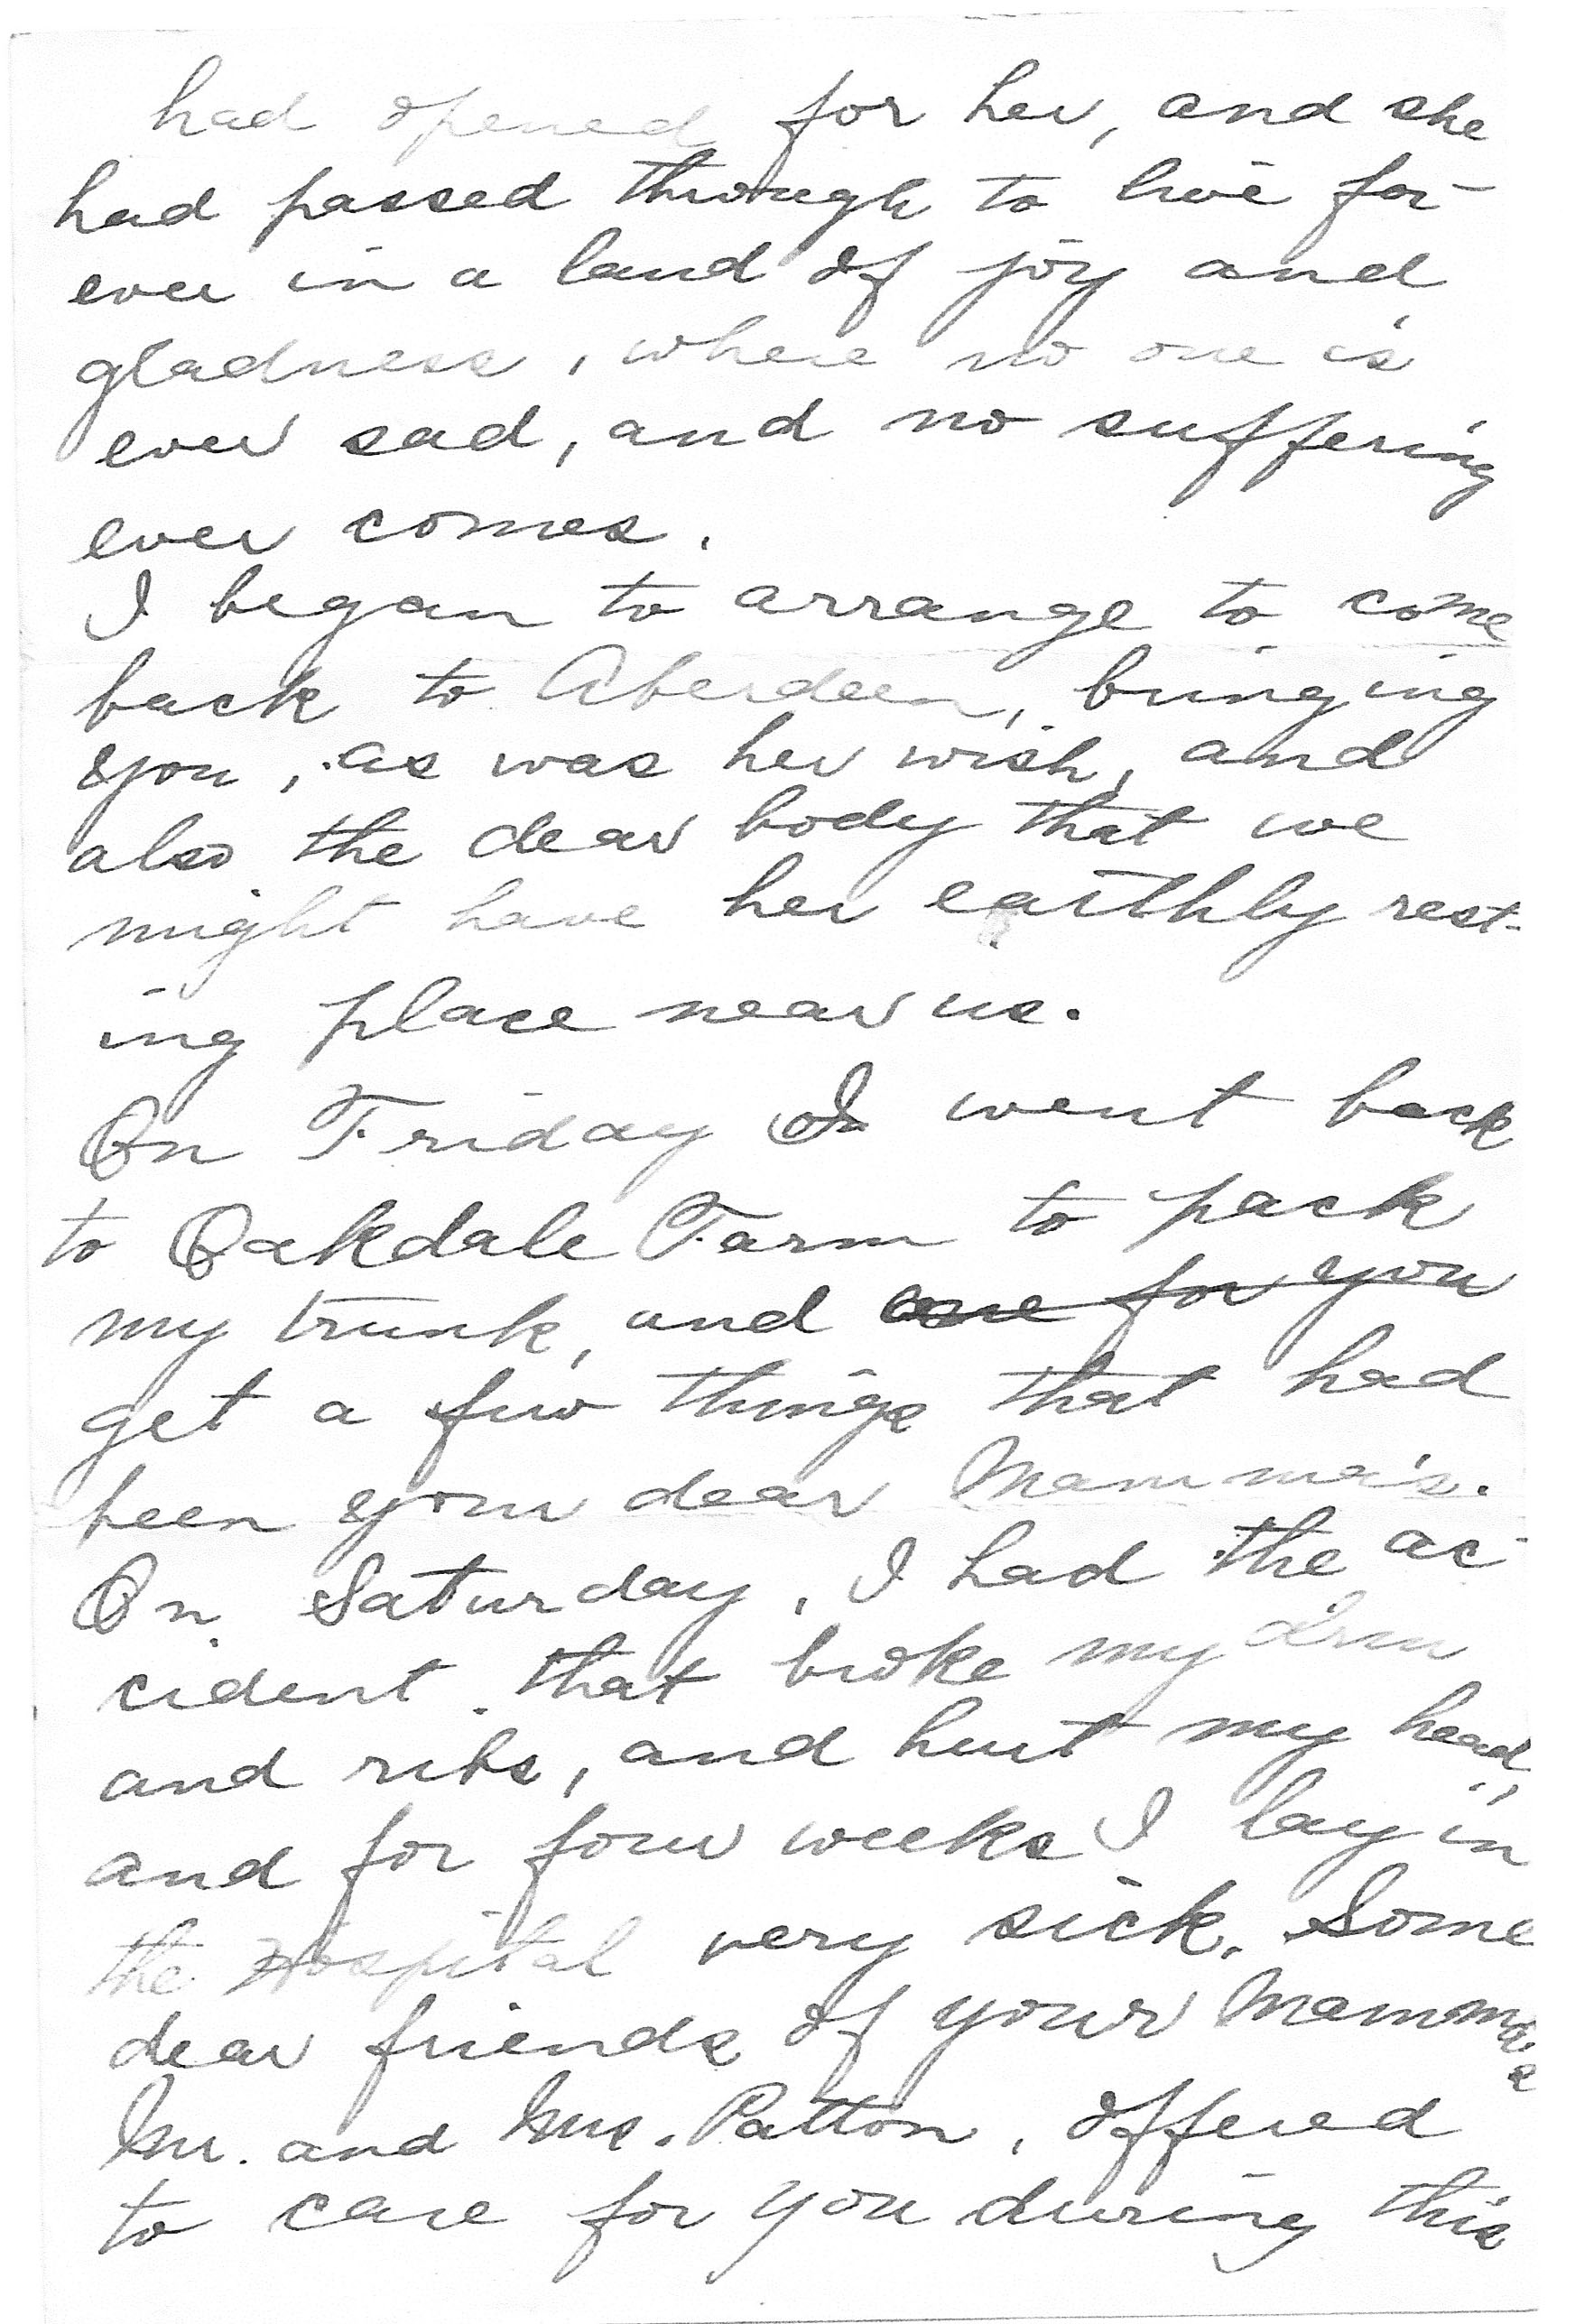 had opened for her, and she
had passed through to live for-
ever in a land of joy and
gladness, where no one is
ever sad, and no suffering
ever comes.
I began to arrange to come
back to Aberdeen, bringing
you, as was her wish, and
also the dear body that we
might have her earthly rest-
ing place near us.
On Friday I went back
to Oakdale Farm to pack
my trunk, and one for you
get a few things that had
been your dear Mamma's.
On Saturday, I had the ac-
cident that broke my arm
and ribs, and hurt my head,
and for four weeks I lay in
the Hospital very sick. Some
dear friends of your Mamma's
Mr. and Mrs. Patton, offered
to care for you during this